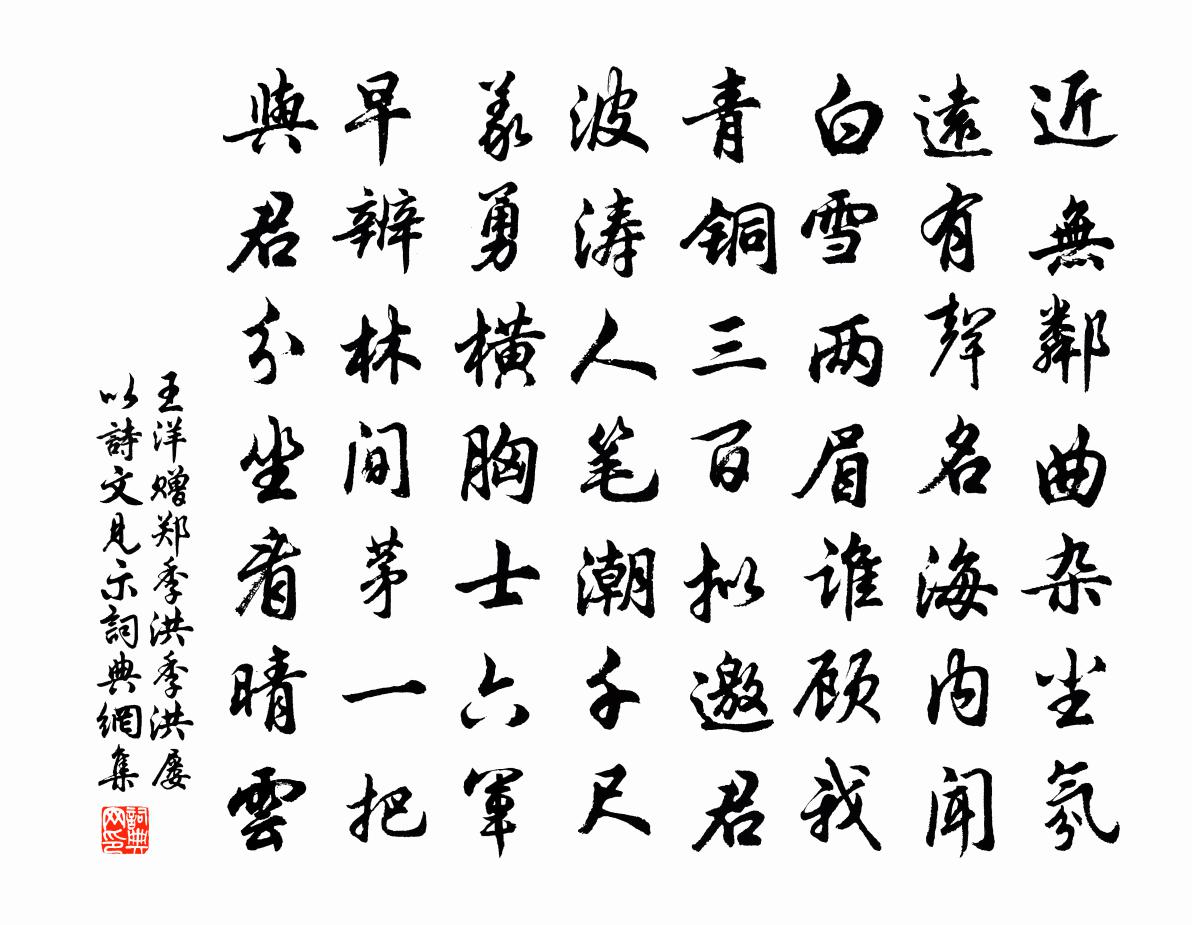 近無鄰曲杂尘氛
遠有聲名海内闻
白雪两眉谁顾我
青铜三百拟邀君
波涛人笔潮千尺
義勇横胸士六軍
早辦林间茅一把
與君分坐看晴雲
王洋赠郑季洪季洪屡
以詩文見示詞典網集
詞典
网印